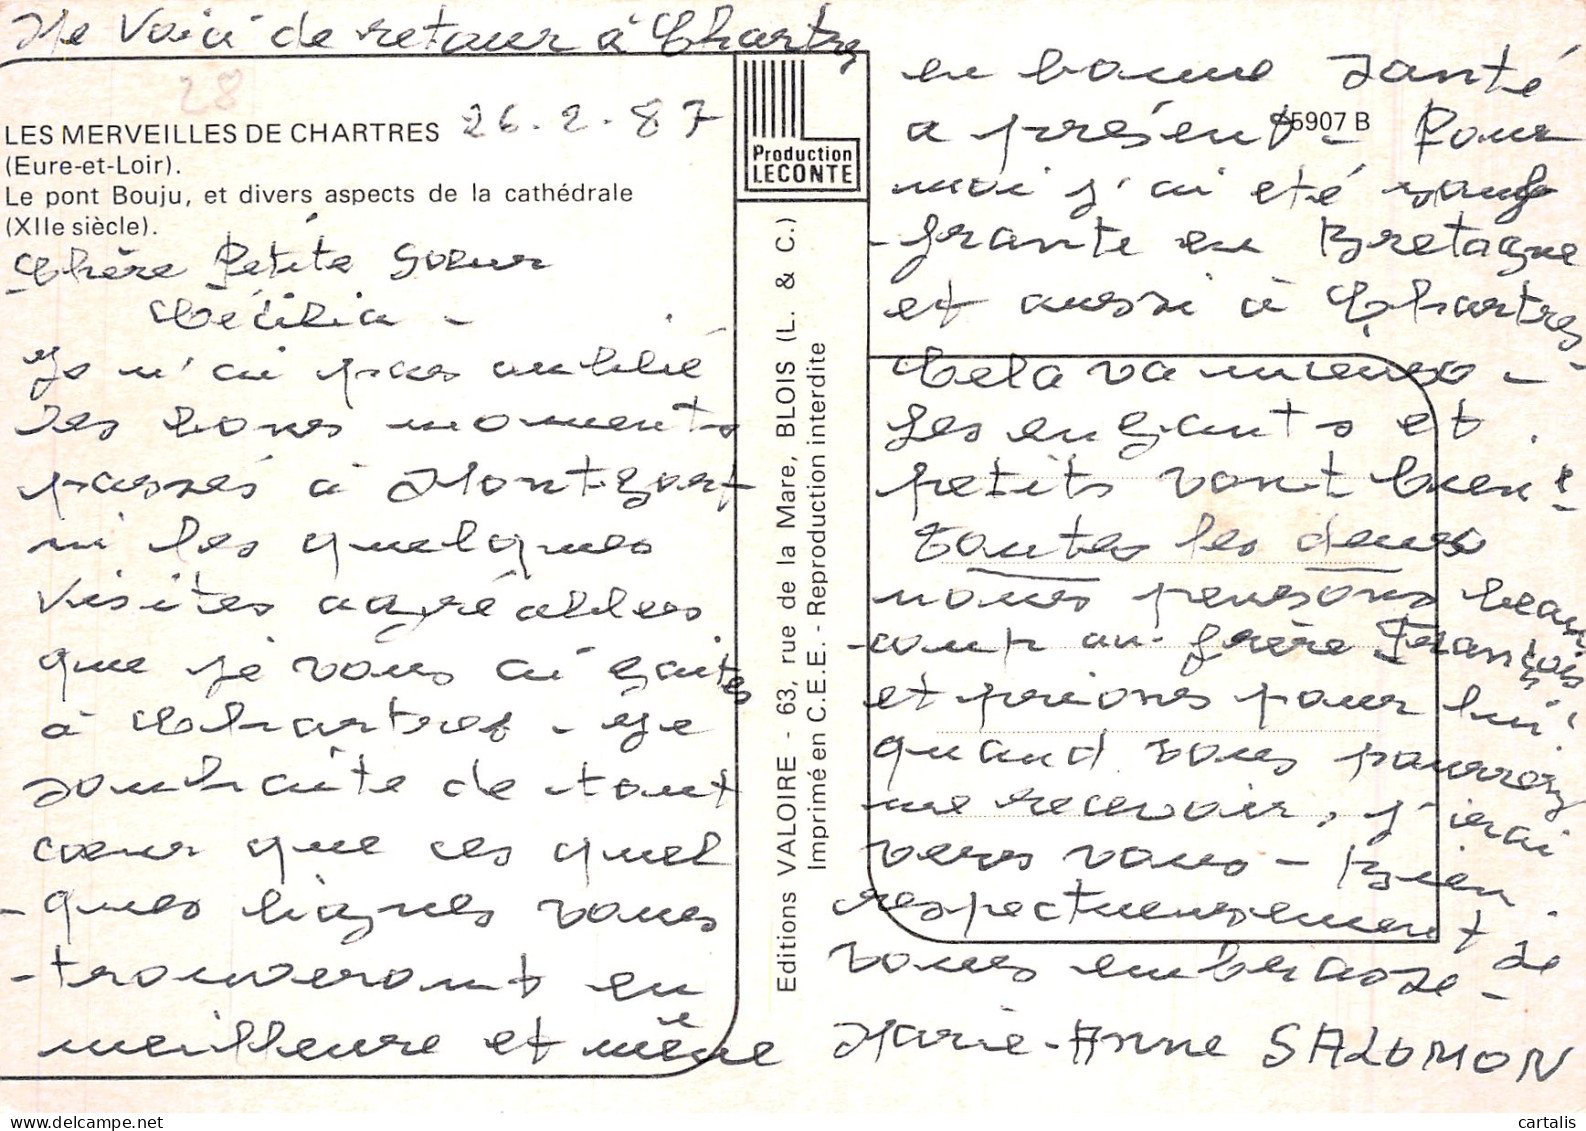 Me voici de retour à Chartres
28
26.2.87
LES MERVEILLES DE CHARTRES
(Eure-et-Loir).
Le pont Bouju, et divers aspects de la cathédrale
(XIIe siècle).
Chère Petite Soeur
Cécilia -
Je n'ai pas oublié
les bons moments
passés à Montfort
ni les quelques
visites agréables
que je vous ai faites
à Chartres - Je
souhaite de tout
cœur que ces quel
-ques lignes vous
-trouveront en
meilleure et même
Production
LECONTE
Editions VALOIRE - 63, rue de la Mare, BLOIS (L. & C.)
Imprimé en C.E.E. - Reproduction interdite
5907 B
en bonne santé
a présent - Pour
moi j'ai eté souf
-frante en Bretagne
et aussi à Chartres-
Cela va mieux -
Les enfants et
petits vont bien !
Toutes les deux
nous pensons beau
-coup au frère François
et prions pour lui.
quand vous pourrez
me recevoir, j'irai
vers vous - Bien
respectueusement je
vous embrasse -
Marie-Anne SALOMON
cartalis